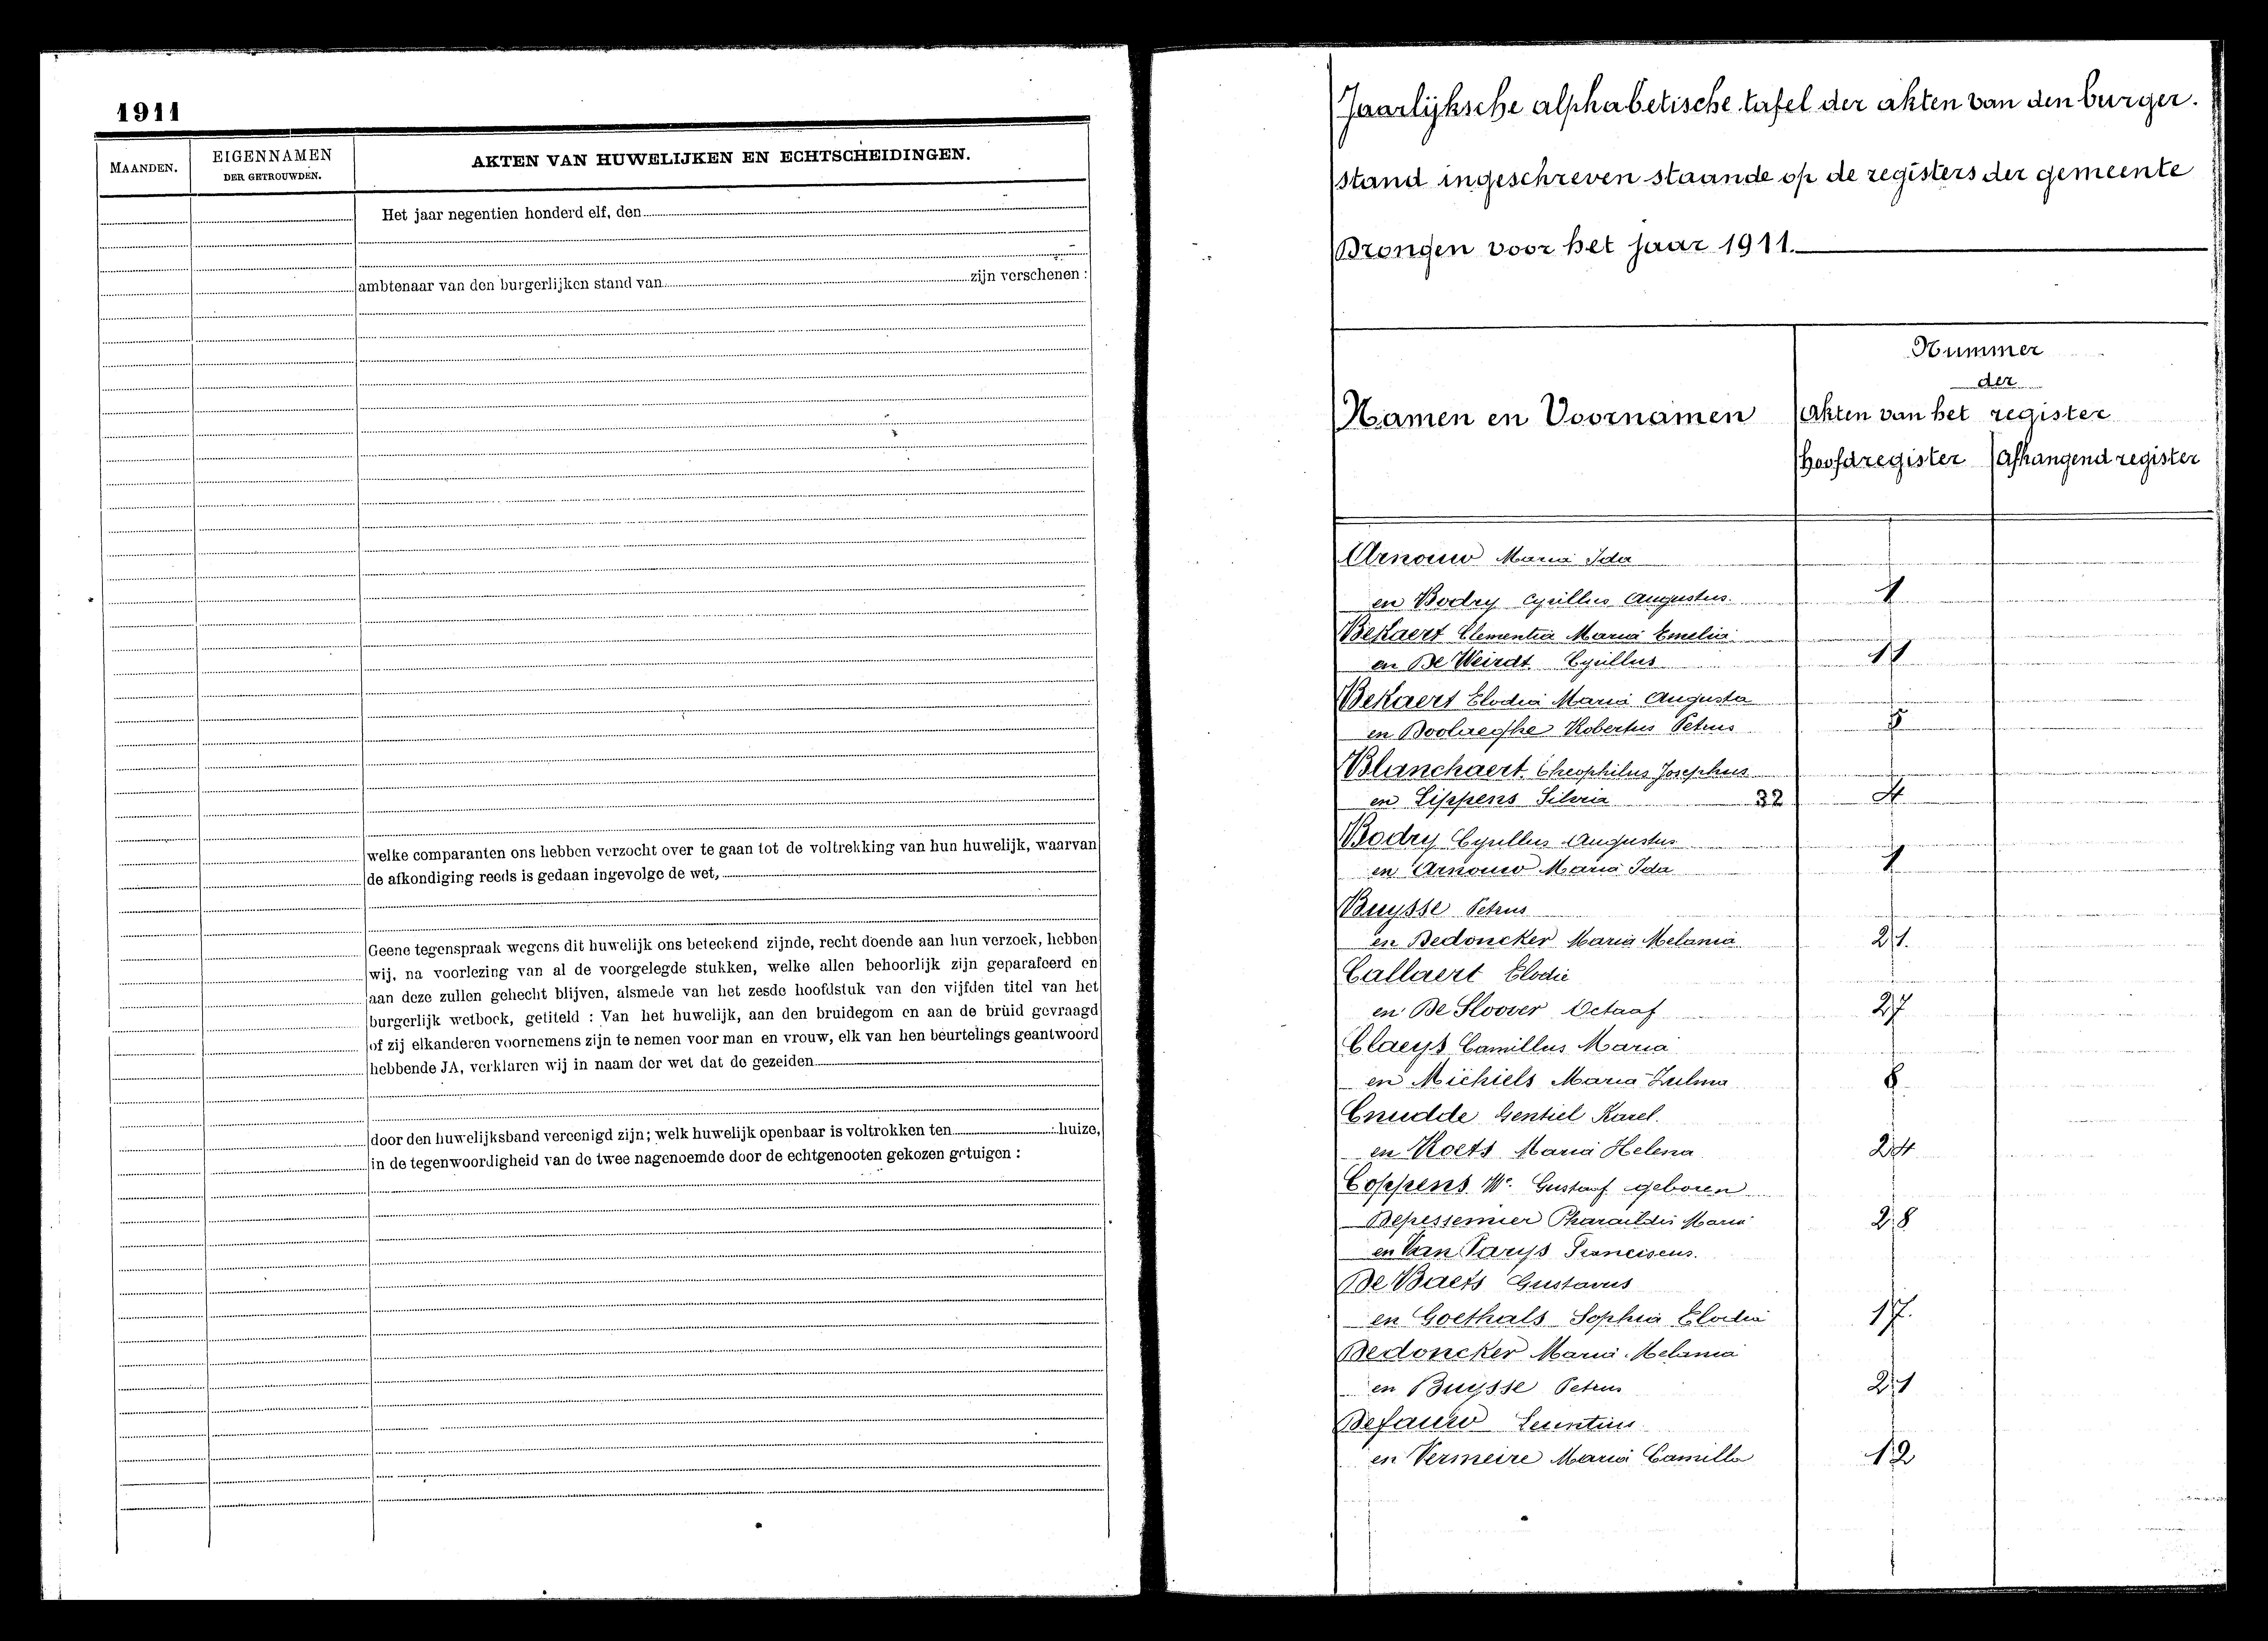 1911
MAANDEN.
EIGENNAMEN
DER GETROUWDEN.
AKTEN VAN HUWELIJKEN EN ECHTSCHEIDINGEN.
Het jaar negentien honderd elf, den
ambtenaar van den burgerlijken stand van zijn verschenen :
welke comparanten ons hebben verzocht over te gaan tot de voltrekking van hun huwelijk, waarvan
de afkondiging reeds is gedaan ingevolge de wet,
Geene tegenspraak wegens dit huwelijk ons beteekend zijnde, recht doende aan hun verzoek, hebben
wij, na voorlezing van al de voorgelegde stukken, welke allen behoorlijk zijn geparafeerd en
aan deze zullen gehecht blijven, alsmede van het zesde hoofdstuk van den vijfden titel van het
burgerlijk wetboek, getiteld : Van het huwelijk, aan den bruidegom en aan de bruid gevraagd
of zij elkanderen voornemens zijn te nemen voor man en vrouw, elk van hen beurtelings geantwoord
hebbende JA, verklaren wij in naam der wet dat de gezeiden
door den huwelijksband vereenigd zijn; welk huwelijk openbaar is voltrokken ten huize,
in de tegenwoordigheid van de twee nagenoemde door de echtgenooten gekozen getuigen :
Jaarlijksche alphabetische tafel der akten van den burger.
stand ingeschreven staande op de registers der gemeente
Drongen voor het jaar 1911.
Namen en Voornamen
Nummer
der
Akten van het register
hoofdregister
Afhangend register
Arnouw Maria Ida
en Bodry Cyrillus Augustus. 1
Bekaert Clementia Maria Emelia
en De Weirdt Cyrillus 11
Bekaert Elodia Maria Augusta
en Robertus Petrus 5
Blanchaert Theophilus Josephus
en Lippens Silvia 32 4
Bodry Cyrillus Augustus
en Arnouw Maria Ida 1
Buysse Petrus
en Dedoncker Maria Melania 21.
Callaert Elodie
en De Sloover Octaaf 27
Claeys Camillus Maria
en Michiels Maria Zulma 8
Cnudde Gentiel Karel.
en Roets Maria Helena 24
Coppens We. Gustaaf geboren
Depessemier Pharaildis Maria 28
en Van Parijs Franciscus.
De Baets Gustavus
en Goethals Sophia Elodia 17.
Dedoncker Maria Melania
en Buysse Petrus 21
Defauw
en Vermeire Maria Camilla 12